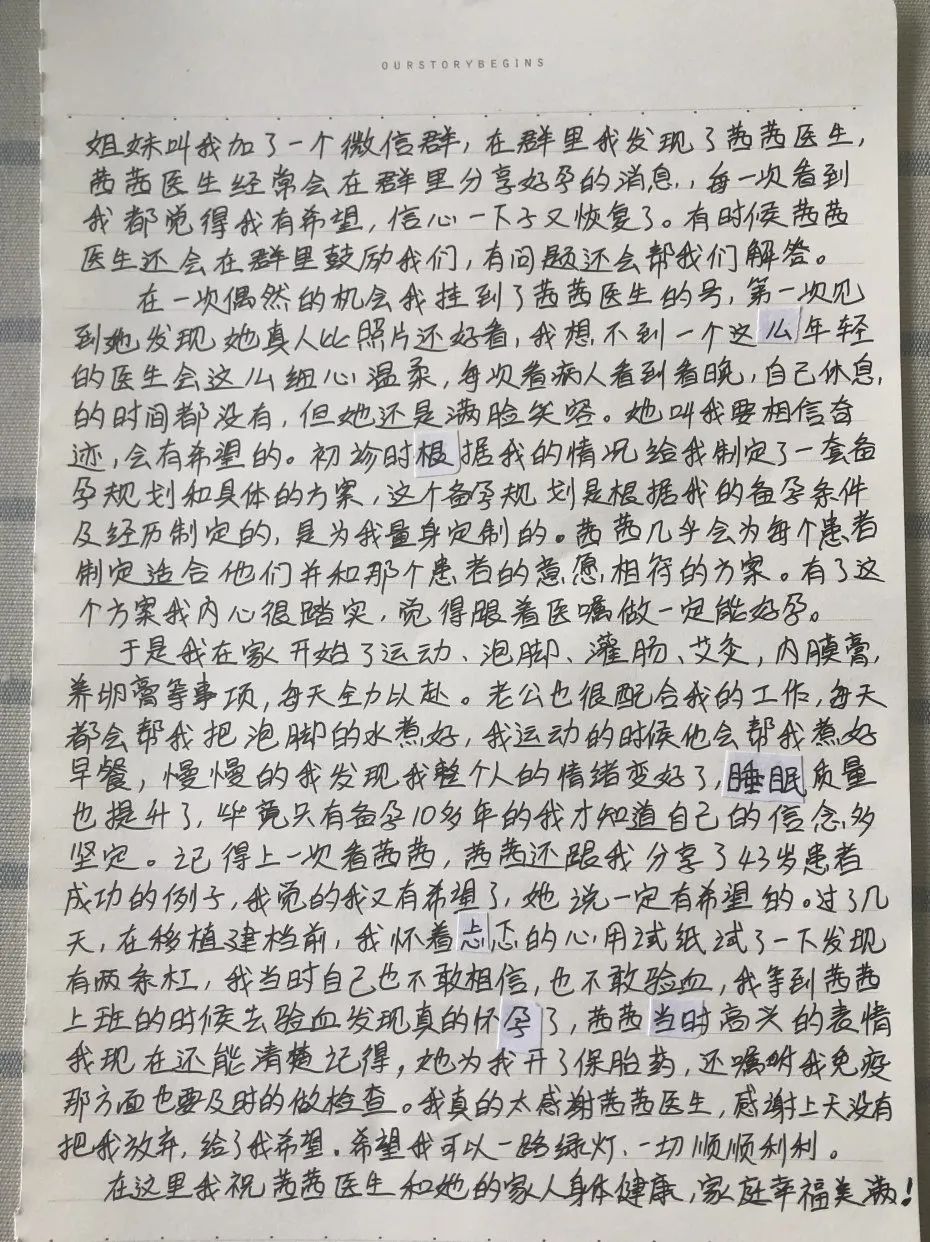 OURSTORYBEGINS
姐妹叫我加了一个微信群，在群里我发现了茜茜医生，
茜茜医生经常会在群里分享好孕的消息，，每一次看到
我都觉得我有希望，信心一下子又恢复了。有时候茜茜
医生还会在群里鼓励我们，有问题还会帮我们解答。
在一次偶然的机会我挂到了茜茜医生的号，第一次见
到她发现她真人比照片还好看，我想不到一个这么年轻
的医生会这么细心温柔，每次看病人看到看晚，自己休息，
的时间都没有，但她还是满脸笑容。她叫我要相信奇
迹，会有希望的。初诊时根据我的情况给我制定了一套备
孕规划和具体的方案，这个备孕规划是根据我的备孕条件
及经历制定的，是为我量身定制的。茜茜几乎会为每个患者
制定适合他们并和那个患者的意愿相符的方案。有了这
个方案我内心很踏实，觉得跟着医嘱做一定能好孕。
于是我在家开始了运动、泡脚、灌肠、艾灸，内膜膏，
养卵膏等事项，每天全力以赴。老公也很配合我的工作，每天
都会帮我把泡脚的水煮好，我运动的时候他会帮我煮好
早餐，慢慢的我发现我整个人的情绪变好了，睡眠质量
也提升了，毕竟只有备孕10多年的我才知道自己的信念多
坚定。记得上一次看茜茜，茜茜还跟我分享了43岁患者
成功的例子，我觉的我又有希望了，她说一定有希望的。过了几
天，在移植建档前，我怀着忐忑的心用试纸试了一下发现
有两条杠，我当时自己也不敢相信，也不敢验血，我等到茜茜
上班的时候去验血发现真的怀孕了，茜茜当时高兴的表情
我现在还能清楚记得，她为我开了保胎药，还嘱咐我免疫
那方面也要及时的做检查。我真的太感谢茜茜医生，感谢上天没有
把我放弃，给了我希望。希望我可以一路绿灯、一切顺顺利利。
在这里我祝茜茜医生和她的家人身体健康，家庭幸福美满！